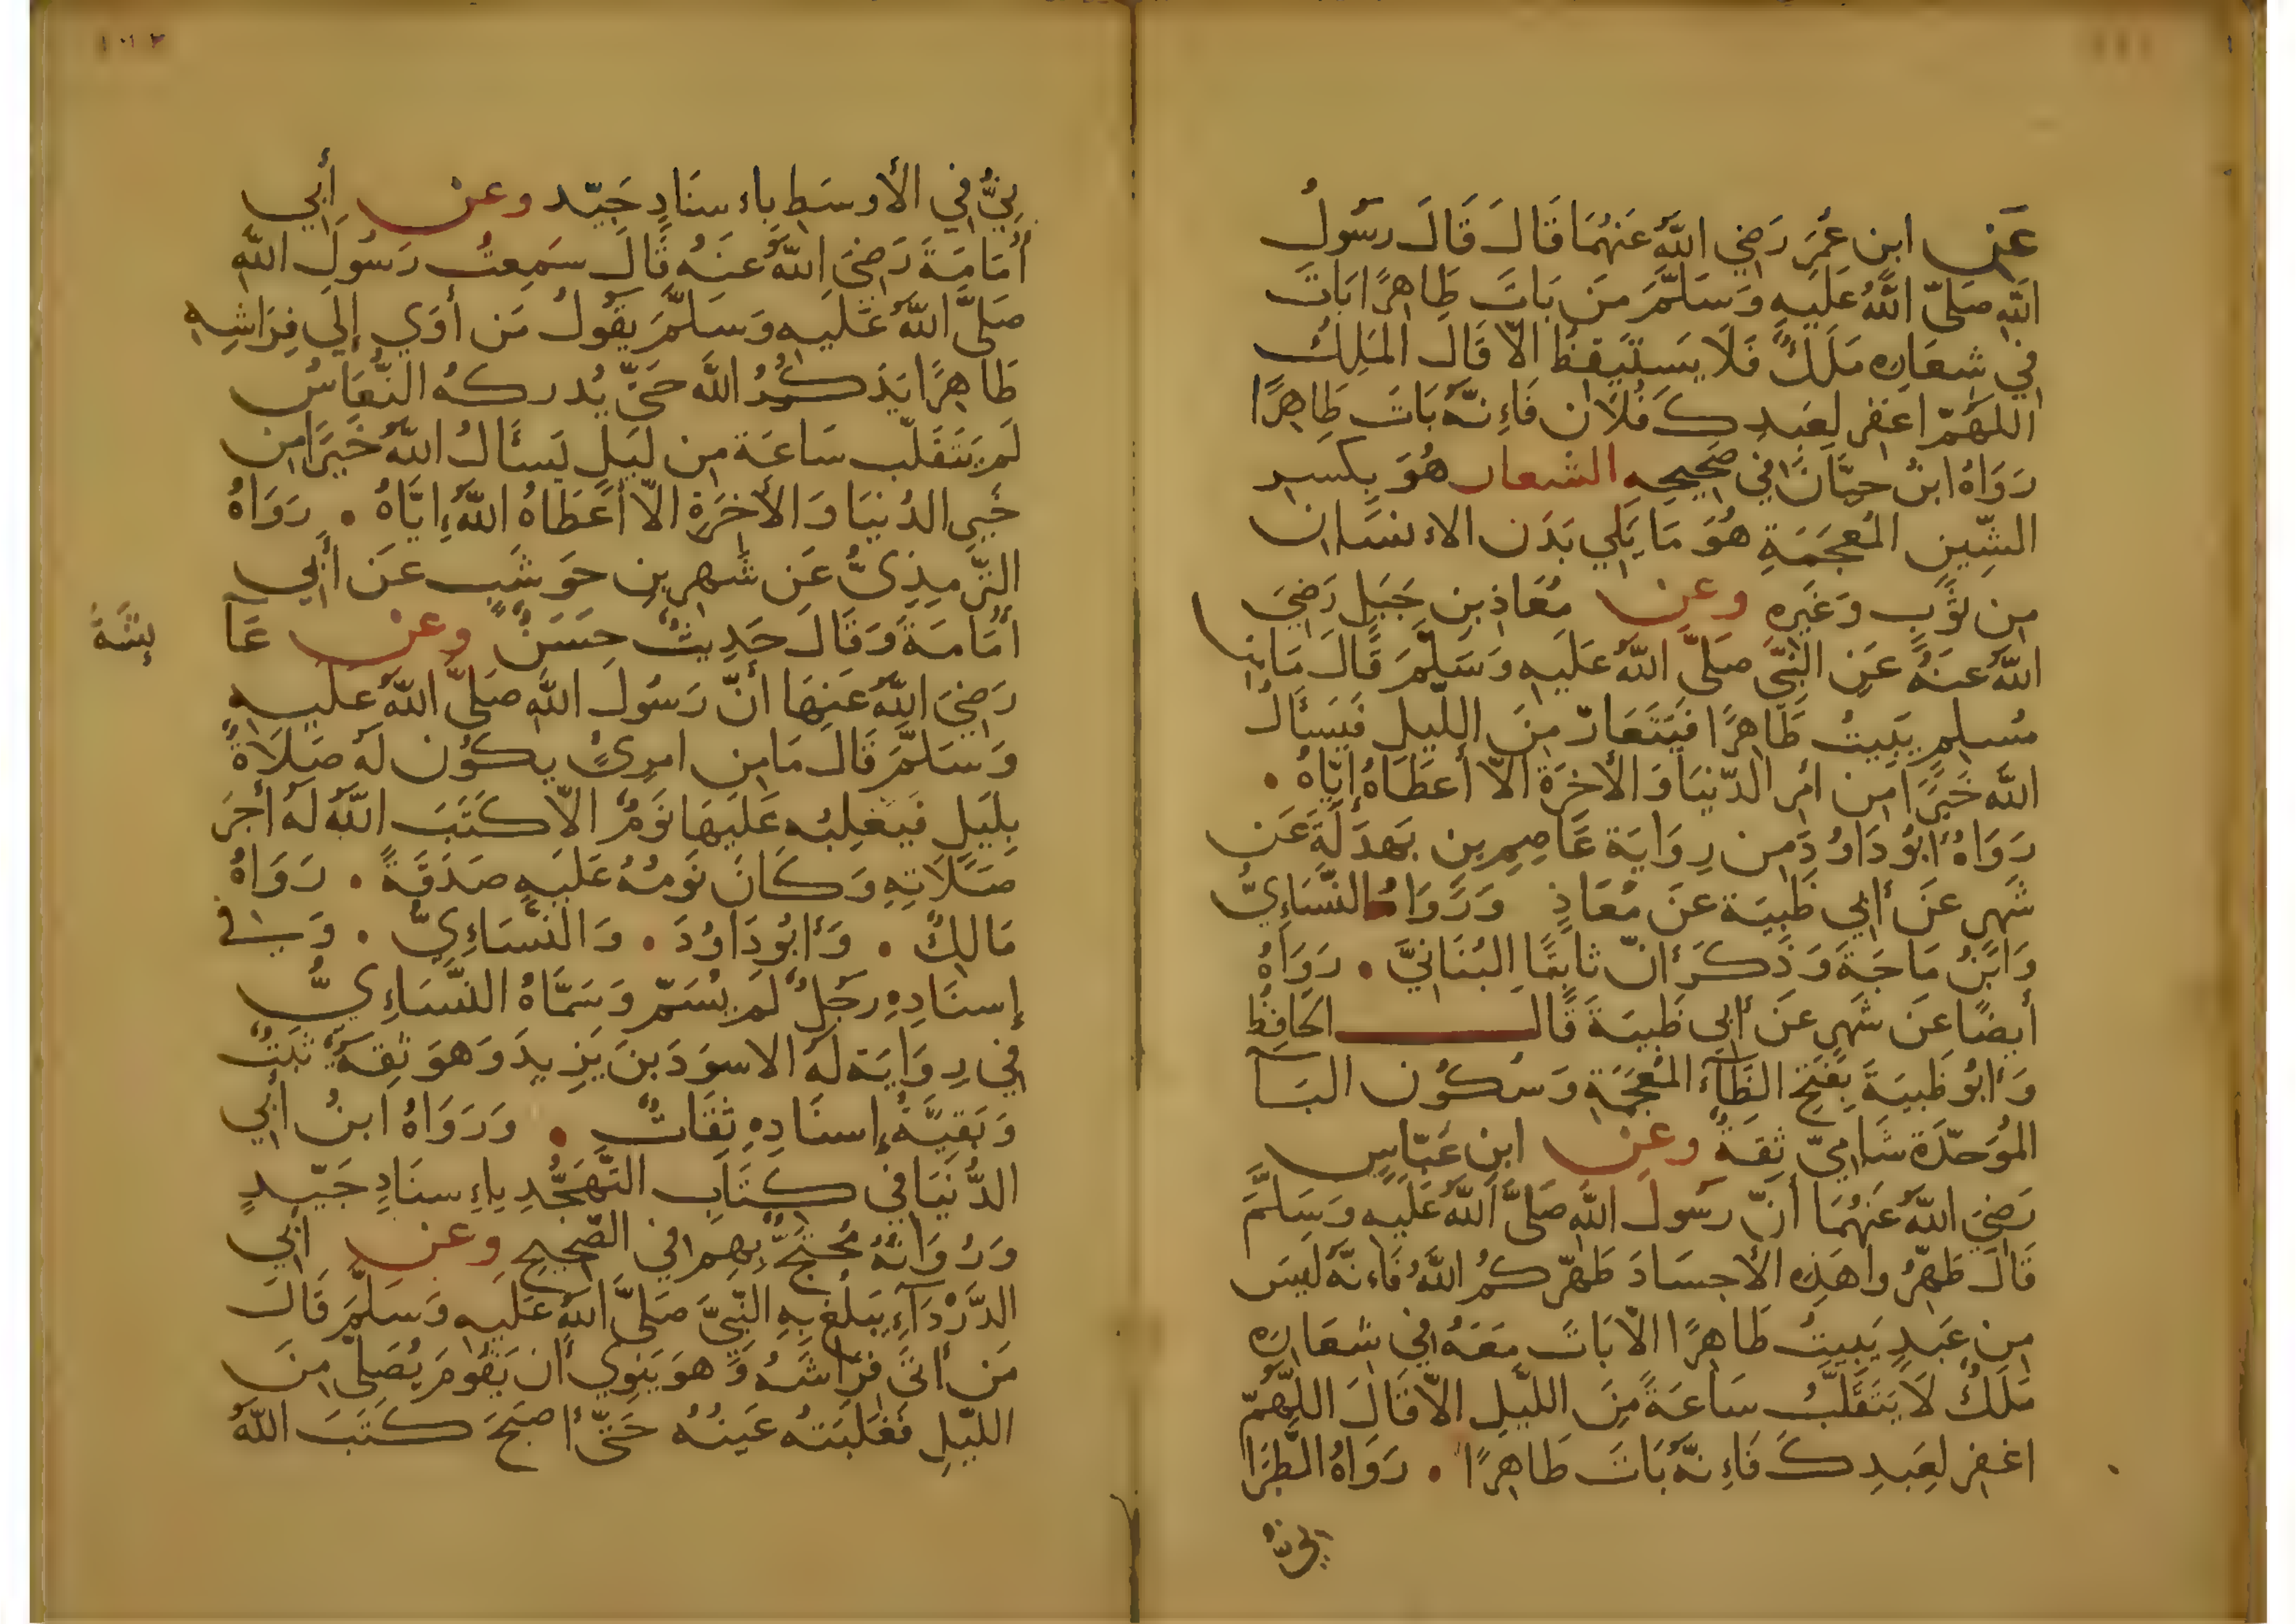 عَن ابن عُمَرَ رَضِي اللَّهُ عَنهُمَا قَالَ قَالَ رسَولُ
اللّهِ صَلَّى اللَّهُ عَلَيهِ وَسَلَّمَ مَن بَاتَ طَاهِرًا بَاتَ
في شِعَارِه مَلَكٌ فَلَا يَستَيقِظُ الّا قَالَ المَلِكُ
اللهُمّ اغفِر لِعَبدِكَ فُلَان فَاءِنّهُ بَاتَ طَاهِرًا
رَوَاهُ ابنُ حبَّانَ في صَحِيحِهِ الشعار هُوَ بِكَسرِ
الشِّينِ المُعجَمَةِ هُوَ مَا يَلِي بَدَن الاءنسَان
مِن ثَوبٍ وَغَيرِه وعن مُعَاذِ بنِ جَبَلٍ رَضِيَ
اللَّهُ عَنهُ عَنِ النَّبِيّ صَلَّى اللَّهُ عَلَيهِ وَسَلَّمَ قَالَ مَا مِن
مُسلِمٍ يَبِيتُ طَاهِرًا فَيَتَعَارّ مِنَ اللّيلِ فَيَسأَلُ
اللَّه خَيرًا مِن امرِ الدّنيَا وَالأخِرَةِ الّا أعطَاهُ إيّاهُ .
رَوَاهُ ابُو دَاوُدَ مِن رِوَايَة عَاصِمِ بنِ بَهدَلَةَ عَن
شَهرٍ عَن أبي ظَبيَة عَن مُعَاذٍ وَرَوَاهُ النَّسَاءِيُّ
وَابنُ مَاجَةَ وَذَكَرَ انّ ثابِتًا البُنَانِيَّ . رَوَاهُ
أيضًا عَن شَهرٍ عَن أبي ظَبيَةَ قَالَ الحَافِظُ
وَابُو ظَبيَةَ بِفَتحِ الظَّآءِ المُعجَمَةِ وَسُكُون البَآ
المُوَحّدَة شَامِيّ ثِقَةٌ وعن ابنِ عَبّاسٍ
رَضِيَ اللَّهُ عَنهُمَا أنّ رسَولَ اللَّهِ صَلَّى اللَّهُ عَلَيهِ وَسَلَّمَ
قَالَ طَهِّرُوا هَذِهِ الأجسَادَ طَهّرَكُمُ اللَّهُ فَاءنّهُ لَيسَ
مِن عَبدٍ يَبيتُ طَاهِرًا الّا بَاتَ مَعَهُ في شِعَارِه
مَلَكٌ لَا يَتَقَلّبُ سَاعَةً مِنَ اللّيلِ الّا قَالَ اللّهُمّ
اغفِر لِعَبدِكَ فَاءِنّهُ بَاتَ طَاهِرًا . رَوَاهُ الطَّبَرَا
نِيُّ في الأوسَطِ بِاءسنَادٍ جَيّد وعن أبِي
أمَامَةَ رَضِيَ اللَّهُ عَنهُ قَالَ سَمِعتُ رَسُولَ اللَّهِ
صَلَّى اللَّهُ عَلَيهِ وَسَلَّمَ يَقُولُ مَن أوَي إلَي فِرَاشِهِ
طَاهِرًا يَذكُرُ اللَّهَ حَتّي يُدركهُ النُّعَاسُ
لَم يَتَقَلّب سَاعَة مِن لَيلٍ يَسأَلُ اللَّهَ خَيرًا مِن
خَيرِ الدُنيَا وَالأخِرَةِ الّا أعطَاهُ اللَّهُ ايّاهُ . رَوَاهُ
التِّرمِذِيُّ عَن شَهرِ بنِ حَوشَبٍ عَن أبِي
امَامَةَ وَقَالَ حَدِيثٌ حَسَنٌ وعن عَا
يشَةَ
رَضِيَ اللَّهُ عَنهَا أنّ رَسُولَ اللَّهِ صَلَّى اللَّهُ عَلَيهِ
وَسَلَّمَ قَالَ مَا مِن امرِئٍ يكُون لَهُ صَلَاةٌ
بِلَيلٍ فَيَغلِبُه عَلَيهَا نَومٌ الّا كَتَبَ اللَّهُ لَهُ أجرَ
صَلَاتِهِ وَكَانَ نَومُهُ عَلَيهِ صَدَقَةً . رَوَاهُ
مَالِكٌ . وَابُو دَاوُدَ . وَالنّسَاءِيّ . وَفي
إسنَادِهِ رَجُلٌ لَم يُسَمّ وَسَمَّاهُ النَّسَاءِيُّ
في رِوَايَة لَهُ الاسوَدَ بنَ يَزِيدَ وَهوَ ثِقَةٌ ثَبتٌ
وَبَقِيَّةُ إسنَادِهِ ثِقَاتٌ . وَرَوَاهُ ابنُ أبِي
الدُّنيَا في كِتَابِ التَّهَجُّدِ بِاءِسنَادٍ جَيّدٍ
وَرُوَاتُهُ مُحتَجٌّ بِهِم في الصّحِيحِ وعن ابي
الدَّردَآءِ يَبلُغ بِهِ النَّبِيّ صَلَّى اللَّهُ عَلَيهِ وَسَلَّمَ قَالَ
مَن أتَى فِرَاشَهُ وَهوَ يَنوِي أن يَقُومَ يُصَلي مِنَ
اللّيلِ فَغَلَبَتهُ عَينُهُ حَتّى أصبَحَ كَتَبَ اللَّهُ